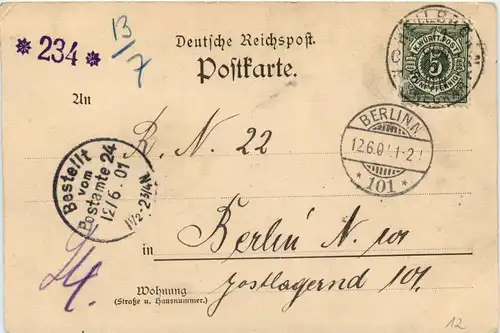 * 234 *
13/7
Deutsche Reichspost.
Postkarte.
K. WÜRTT. POST
5
FÜNF PFENNIG
An
R. N. 22
BERLIN N
12.6.01 1-2
* 101 *
Bestellt
vom
Postamte 24
12/6. 01
1½-2¾ N
in
Berlin N. 101
postlagernd 101.
Wohnung
(Straße u. Hausnummer.)
12